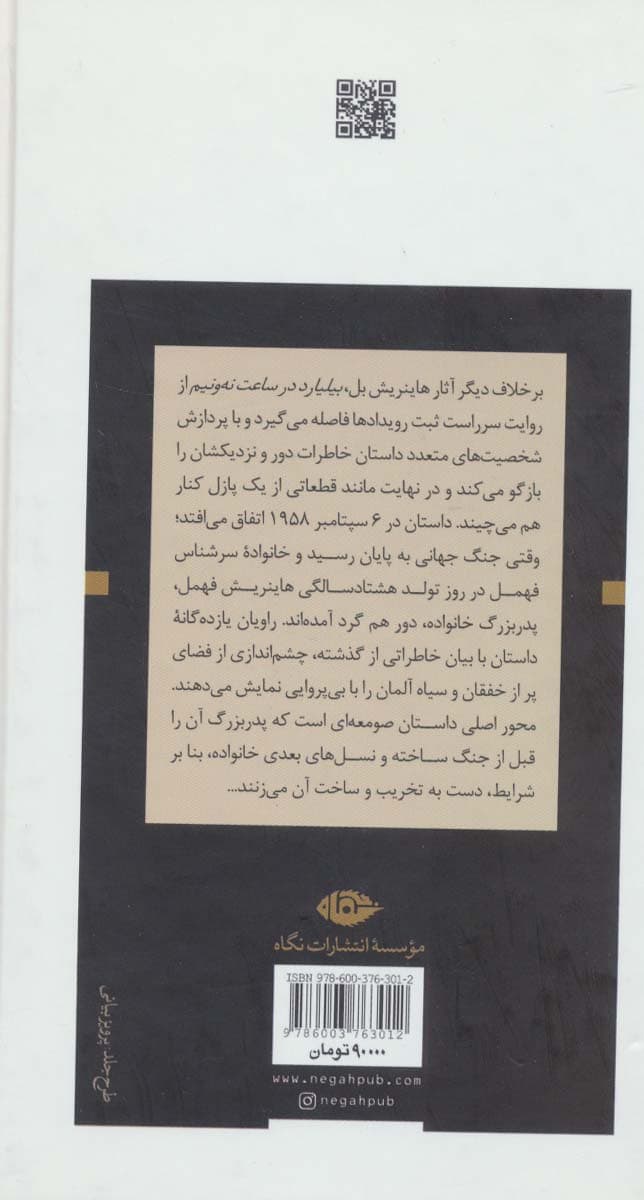 برخلاف دیگر آثار هاینریش بل، بیلیارد در ساعت نه‌ونیم از
روایت سرراست ثبت رویدادها فاصله می‌گیرد و با پردازش
شخصیت‌های متعدد داستان خاطرات دور و نزدیکشان را
بازگو می‌کند و در نهایت مانند قطعاتی از یک پازل کنار
هم می‌چیند. داستان در ۶ سپتامبر ۱۹۵۸ اتفاق می‌افتد؛
وقتی جنگ جهانی به پایان رسید و خانوادهٔ سرشناس
فهمل در روز تولد هشتادسالگی هاینریش فهمل،
پدربزرگ خانواده، دور هم گرد آمده‌اند. راویان یازده‌گانهٔ
داستان با بیان خاطراتی از گذشته، چشم‌اندازی از فضای
پر از خفقان و سیاه آلمان را با بی‌پروایی نمایش می‌دهند.
محور اصلی داستان صومعه‌ای است که پدربزرگ آن را
قبل از جنگ ساخته و نسل‌های بعدی خانواده، بنا بر
شرایط، دست به تخریب و ساخت آن می‌زنند...
مؤسسهٔ انتشارات نگاه
ISBN 978-600-376-301-2
9 786003 763012
۹۰۰۰۰ تومان
www.negahpub.com
negahpub
طرح جلد: پرویز بیانی